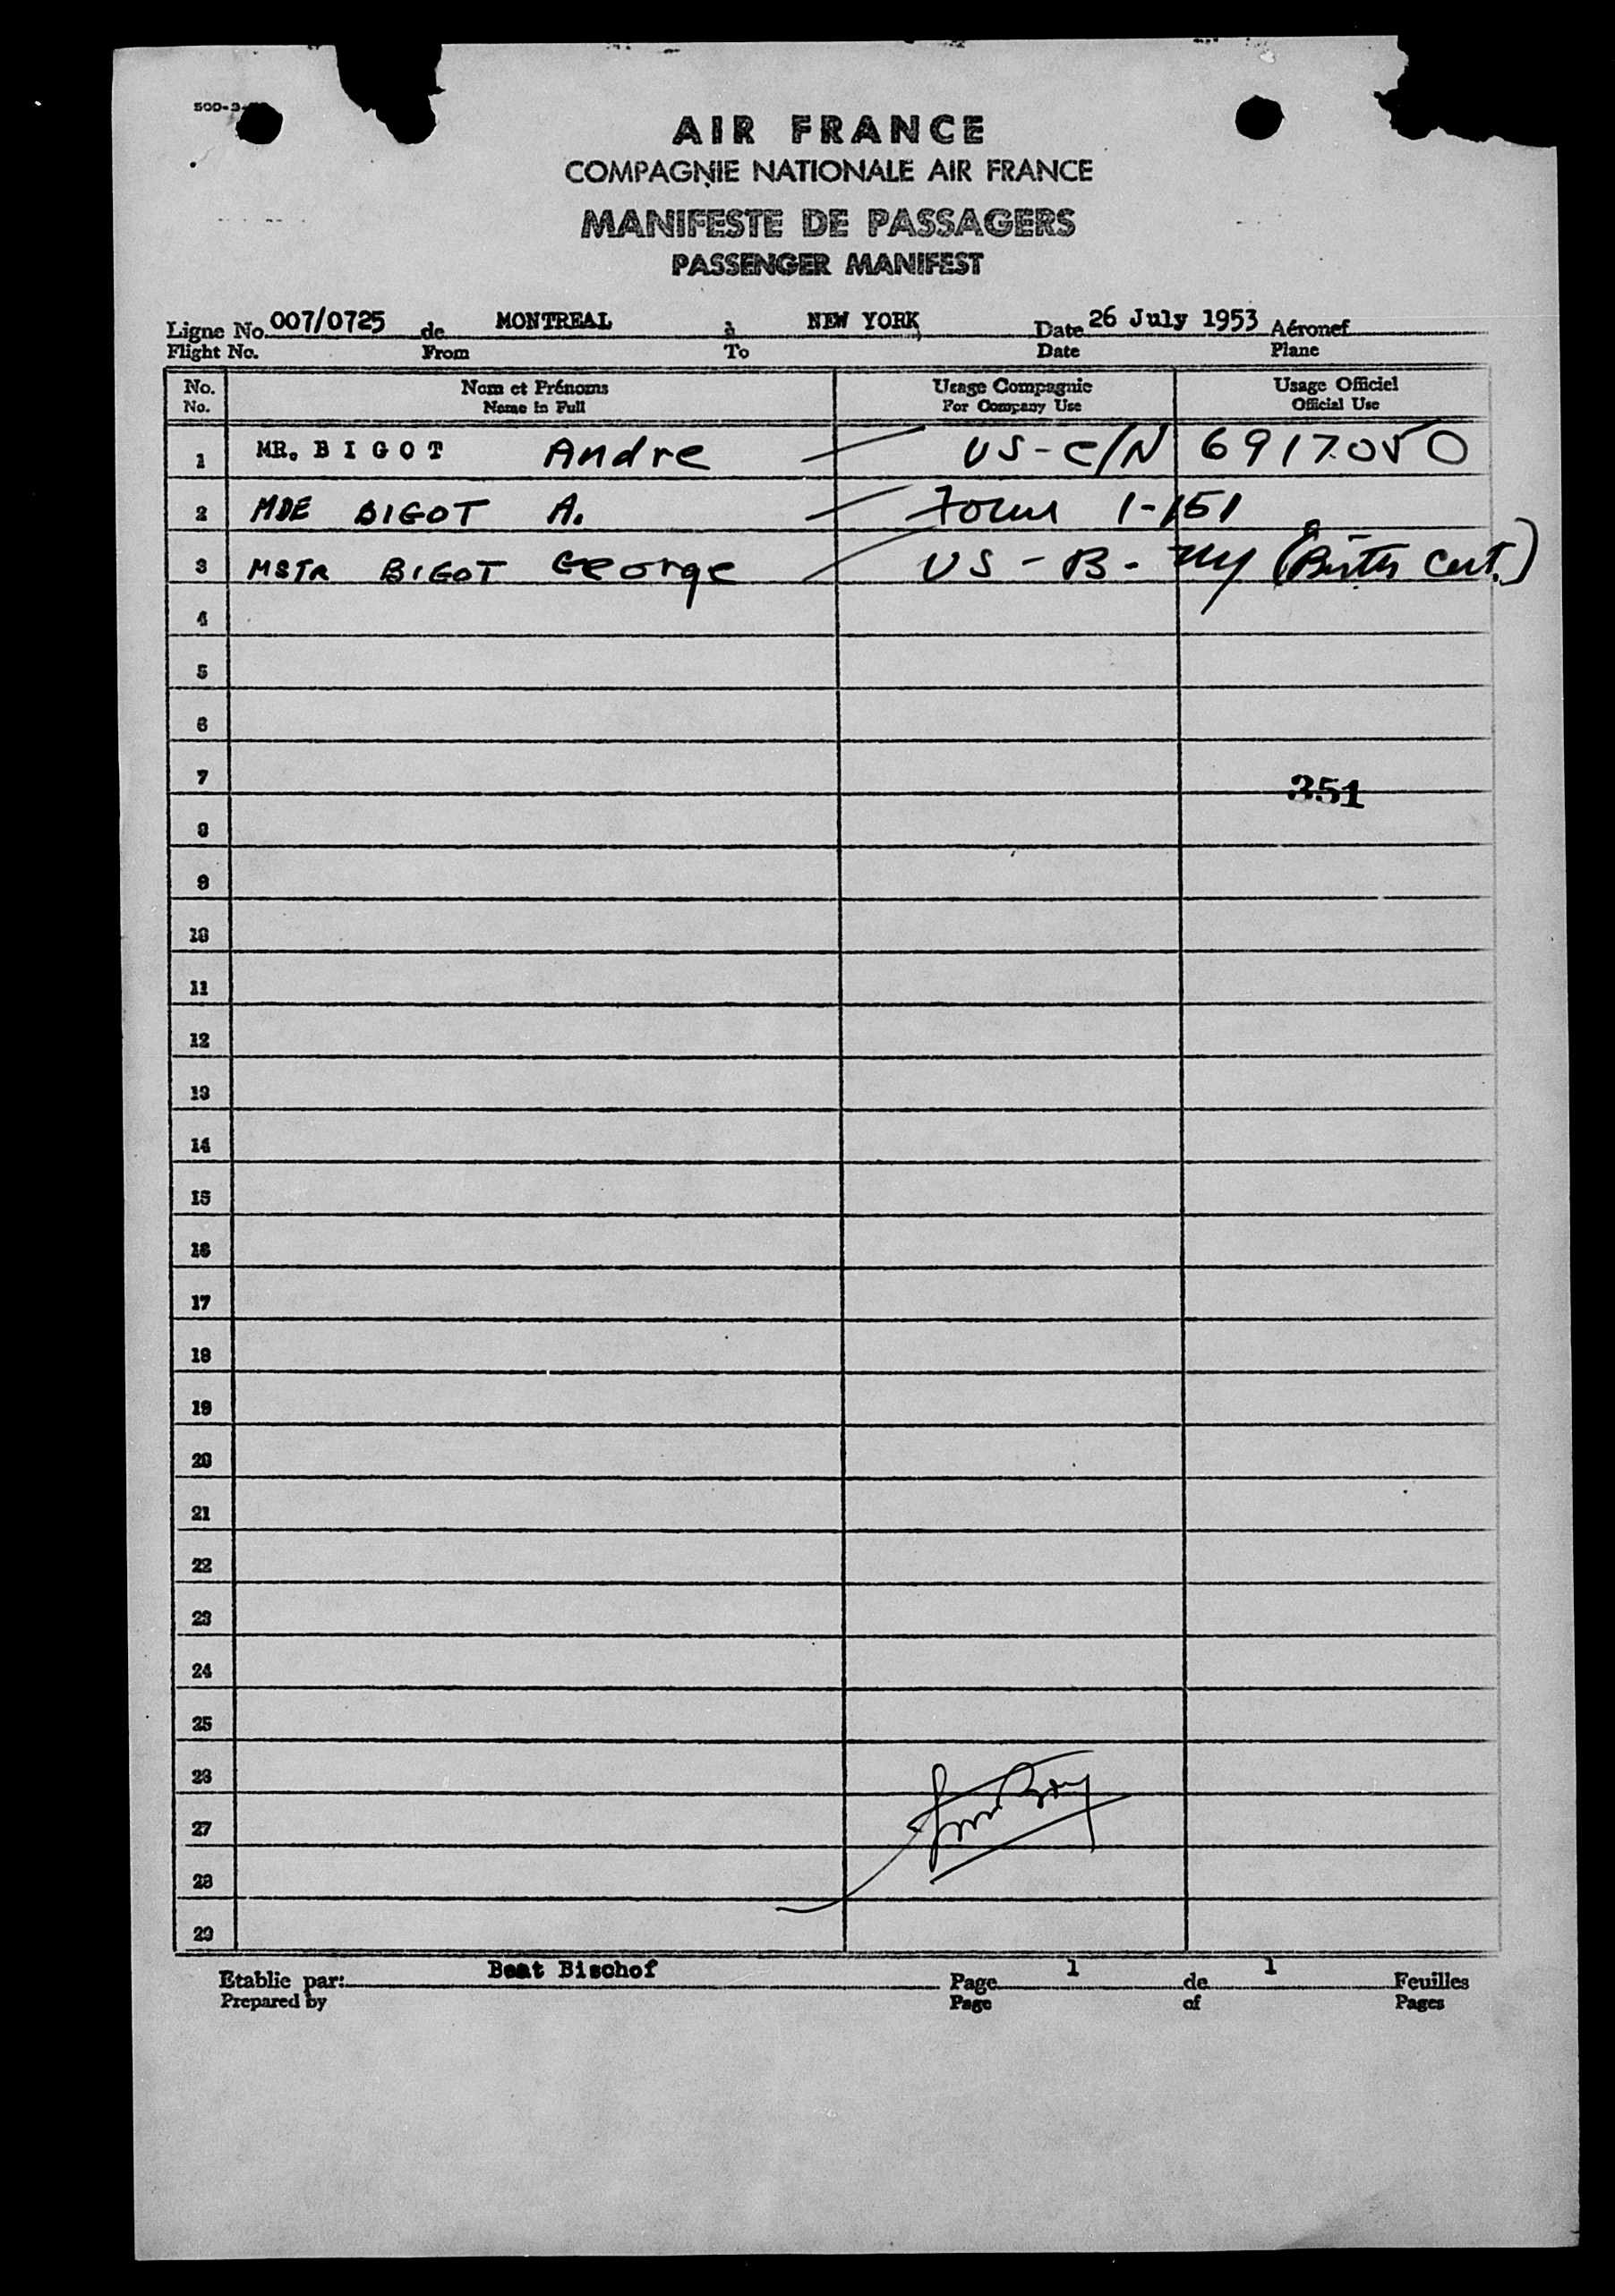 500-3-
AIR FRANCE
COMPAGNIE NATIONALE AIR FRANCE
MANIFESTE DE PASSAGERS
PASSENGER MANIFEST
Ligne No. 007/0725 de MONTREAL à NEW YORK, Date 26 July 1953 Aéronef
Flight No. From To Date Plane
No. Nom et Prénoms Usage Compagnie Usage Officiel
No. Name in Full For Company Use Official Use
1 MR. BIGOT Andre US-C/N 6917050
2 MDE BIGOT A. Form 1-151
3 MSTR BIGOT George US-B-NY (Birth Cert.)
4
5
6
7
351
8
9
10
11
12
13
14
15
16
17
18
19
20
21
22
23
24
25
26
27
28
29
Etablie par: Beat Bischof Page 1 de 1 Feuilles
Prepared by Page of Pages